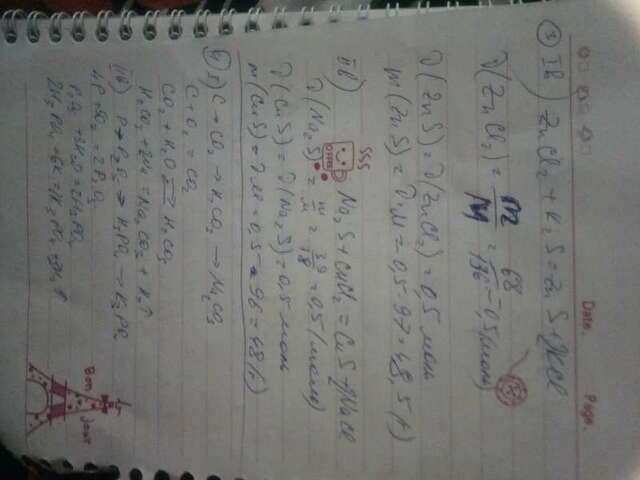 Date. Page.
③ Iв) ZnCl₂ + K₂S = ZnS + 2KCl
ν(ZnCl₂) = m/M = 68/136 = 0,5 (моль)
ν(ZnS) = ν(ZnCl₂) = 0,5 моль
m(ZnS) = ν·M = 0,5 · 97 = 48,5 (г)
SSS
IIв) Na₂S + CuCl₂ = CuS + 2NaCl
ν(Na₂S) = m/M = 39/78 = 0,5 (моль)
ν(CuS) = ν(Na₂S) = 0,5 моль
m(CuS) = ν·M = 0,5 · 96 = 48 (г)
④ I) C → CO₂ → H₂CO₃ → Na₂CO₃
C + O₂ = CO₂
CO₂ + H₂O ⇄ H₂CO₃
H₂CO₃ + 2Na = Na₂CO₃ + H₂↑
IIв) P → P₂O₅ → H₃PO₄ → K₃PO₄
4P + 5O₂ = 2P₂O₅
P₂O₅ + 3H₂O = 2H₃PO₄
2H₃PO₄ + 6K = 2K₃PO₄ + 3H₂↑
Bon